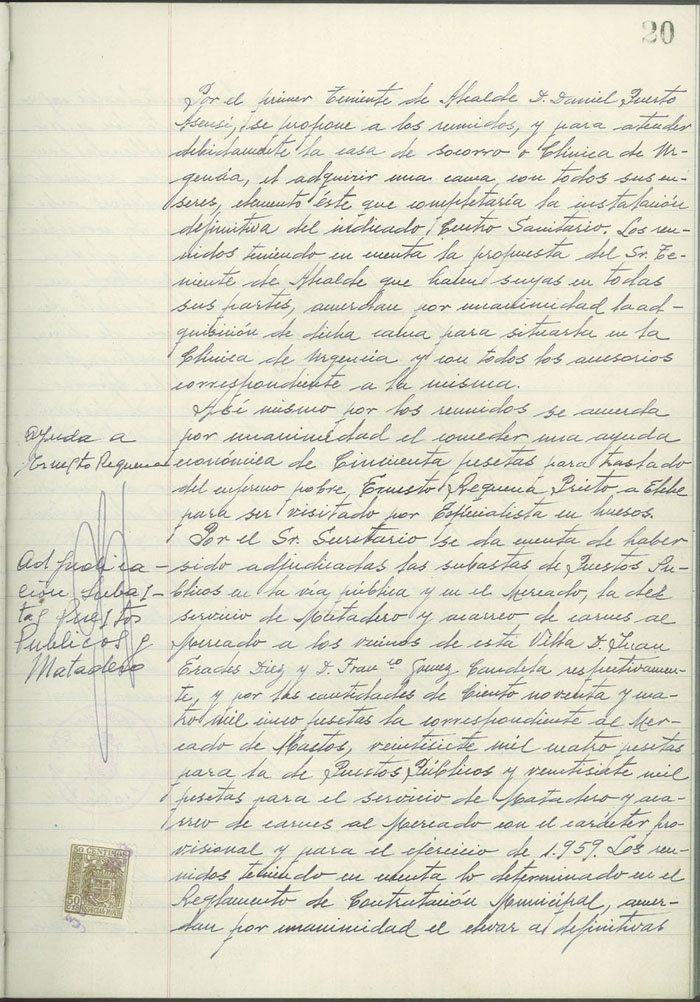 20
Por el primer teniente de Alcalde D. Daniel Puerto
Asensi, se propone a los reunidos, y para atender
debidamente la casa de socorro o Clínica de Ur-
gencia, el adquirir una cama con todos sus en-
seres, elemento éste que completaría la instalación
definitiva del indicado Centro Sanitario. Los reu-
nidos teniendo en cuenta la propuesta del Sr. Te-
niente de Alcalde que hacen suyas en todas
sus partes, acuerdan por unanimidad la ad-
quisición de dicha cama para situarla en la
Clínica de Urgencia y con todos los accesorios
correspondiente a la misma.
Así mismo por los reunidos se acuerda
por unanimidad el conceder una ayuda
económica de Cincuenta pesetas para traslado
del enfermo pobre, Ernesto Requena Prieto a Elche
para ser visitado por Especialista en huesos.
Por el Sr. Secretario se da cuenta de haber
sido adjudicadas las subastas de Puestos Pu-
blicos en la vía pública y en el Mercado, la del
servicio de Matadero y acarreo de carnes al
Mercado a los vecinos de esta Villa D. Juan
Erades Diez y D. Franco Gomez Candela respectivamen-
te, y por las cantidades de Ciento noventa y cua-
tro mil cinco pesetas la correspondiente al Mer-
cado de Abastos, veintisiete mil cuatro pesetas
para la de Puestos Públicos y veintisiete mil
pesetas para el servicio de Matadero y aca-
rreo de carnes al Mercado con el carácter pro-
visional y para el ejercicio de 1.959. Los reu-
nidos teniendo en cuenta lo determinado en el
Reglamento de Contratación Municipal, acuer-
dan por unanimidad el elevar a definitivas
Ayuda a
Ernesto Requena
Adjudica-
ción Subas-
tas Puestos
Publicos y
Matadero
50 CENTIMOS
50